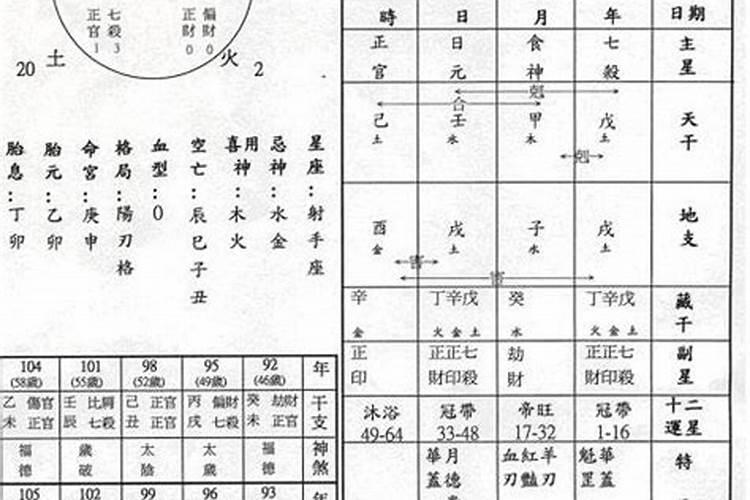 七殺3
正官1
偏財0
正財0
20 土
火 2
星座：射手座
忌神：水金
用
喜神：木火
空亡：辰巳子丑
血型：O
格局：陽刃格
命宮：庚申
胎元：乙卯
胎息：丁卯
104 101 98 95 92 年
(58歲) (55歲) (52歲) (49歲) (46歲)
乙 傷官 壬 比肩 己 正官 丙 偏財 癸 劫財 干
未 正官 辰 七殺 丑 正官 戌 七殺 未 正官 支
福 歲 太 太 福 神
德 破 陰 歲 德 煞
105 102 99 96 93 年
時 日 月 年 日期
正 日 食 七 主
官 元 神 殺 星
剋
合
己 壬 甲 戊 天
土 水 木 土 干
剋
酉 戌 子 戌 地
金 土 水 土 支
害
害
辛 丁辛戊 癸 丁辛戊 藏
金 火金土 水 火金土 干
正 正正七 劫 正正七 副
印 財印殺 財 財印殺 星
沐浴 冠帶 帝旺 冠帶 十二
49-64 33-48 17-32 1-16 運星
華月 血紅羊 魁華 特
蓋德 刃豔刃 罡蓋